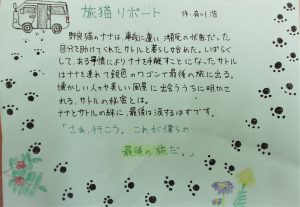 旅猫リポート 作:有川浩
野良猫のナナは、事故に遭い、瀕死の状態だった。
自分を助けてくれたサトルと暮らし始めた。しばらくし
て、ある事情によりナナを手離すことになったサトル
はナナを連れて銀色のワゴンで最後の旅に出る。
懐かしい人々や美しい風景に出会ううちに明かさ
れる、サトルの秘密とは。
ナナとサトルの絆に、最後は涙するはずです。
「さあ、行こう。これが僕らの
最後の旅だ。」